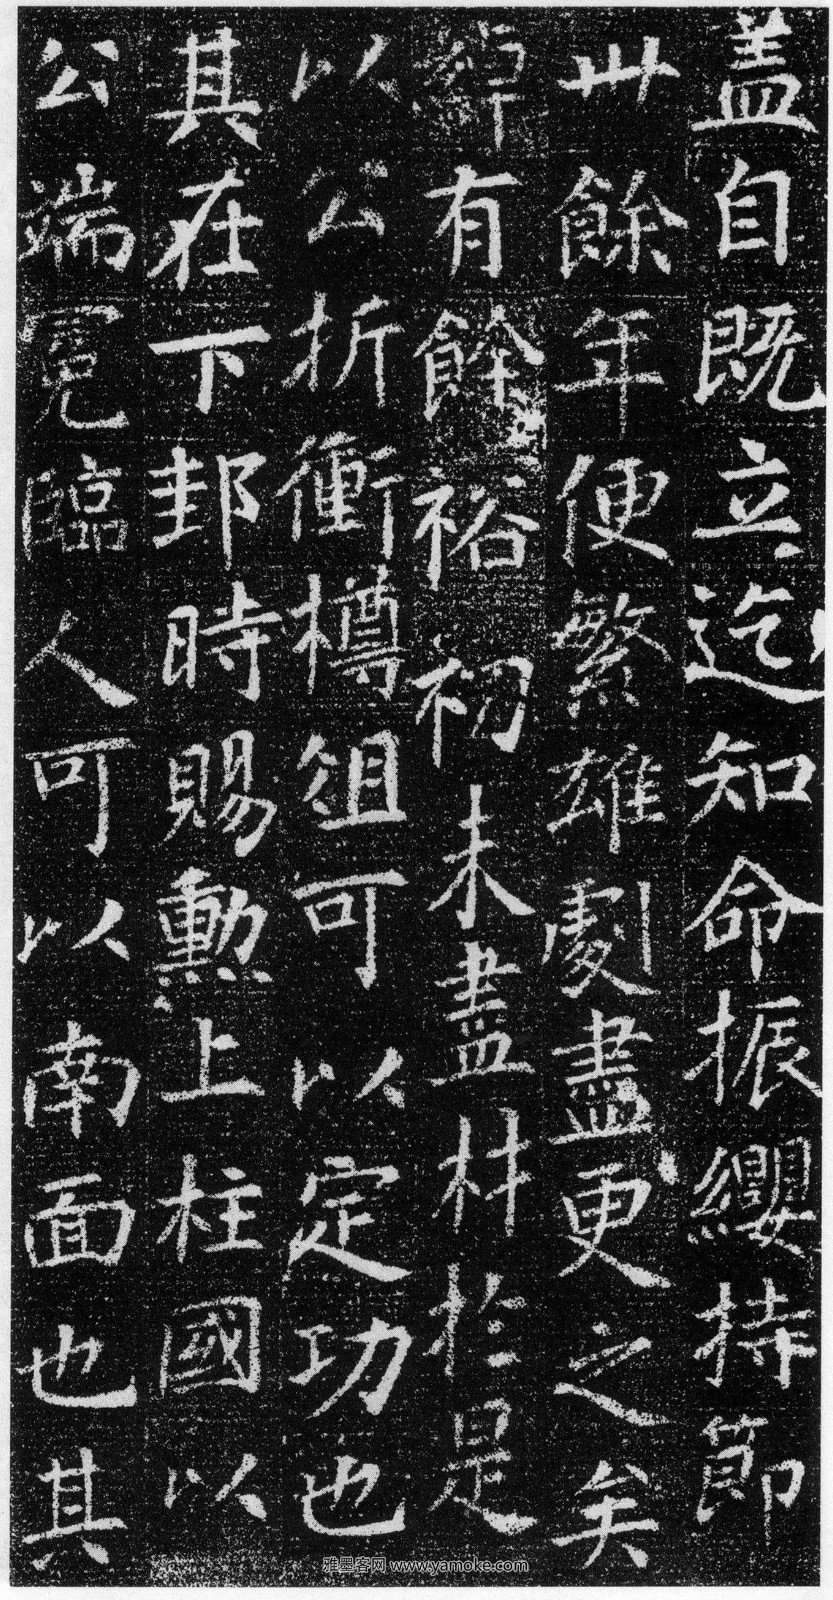 盖自既立迄知命振纓持節
卅餘年便繁雄劇盡更之矣
綽有餘裕初未盡材於是
以公折衝樽俎可以定功也
其在下邽時賜勲上柱國以
公端冕臨人可以南面也其
雅墨客网 www.yamoke.com